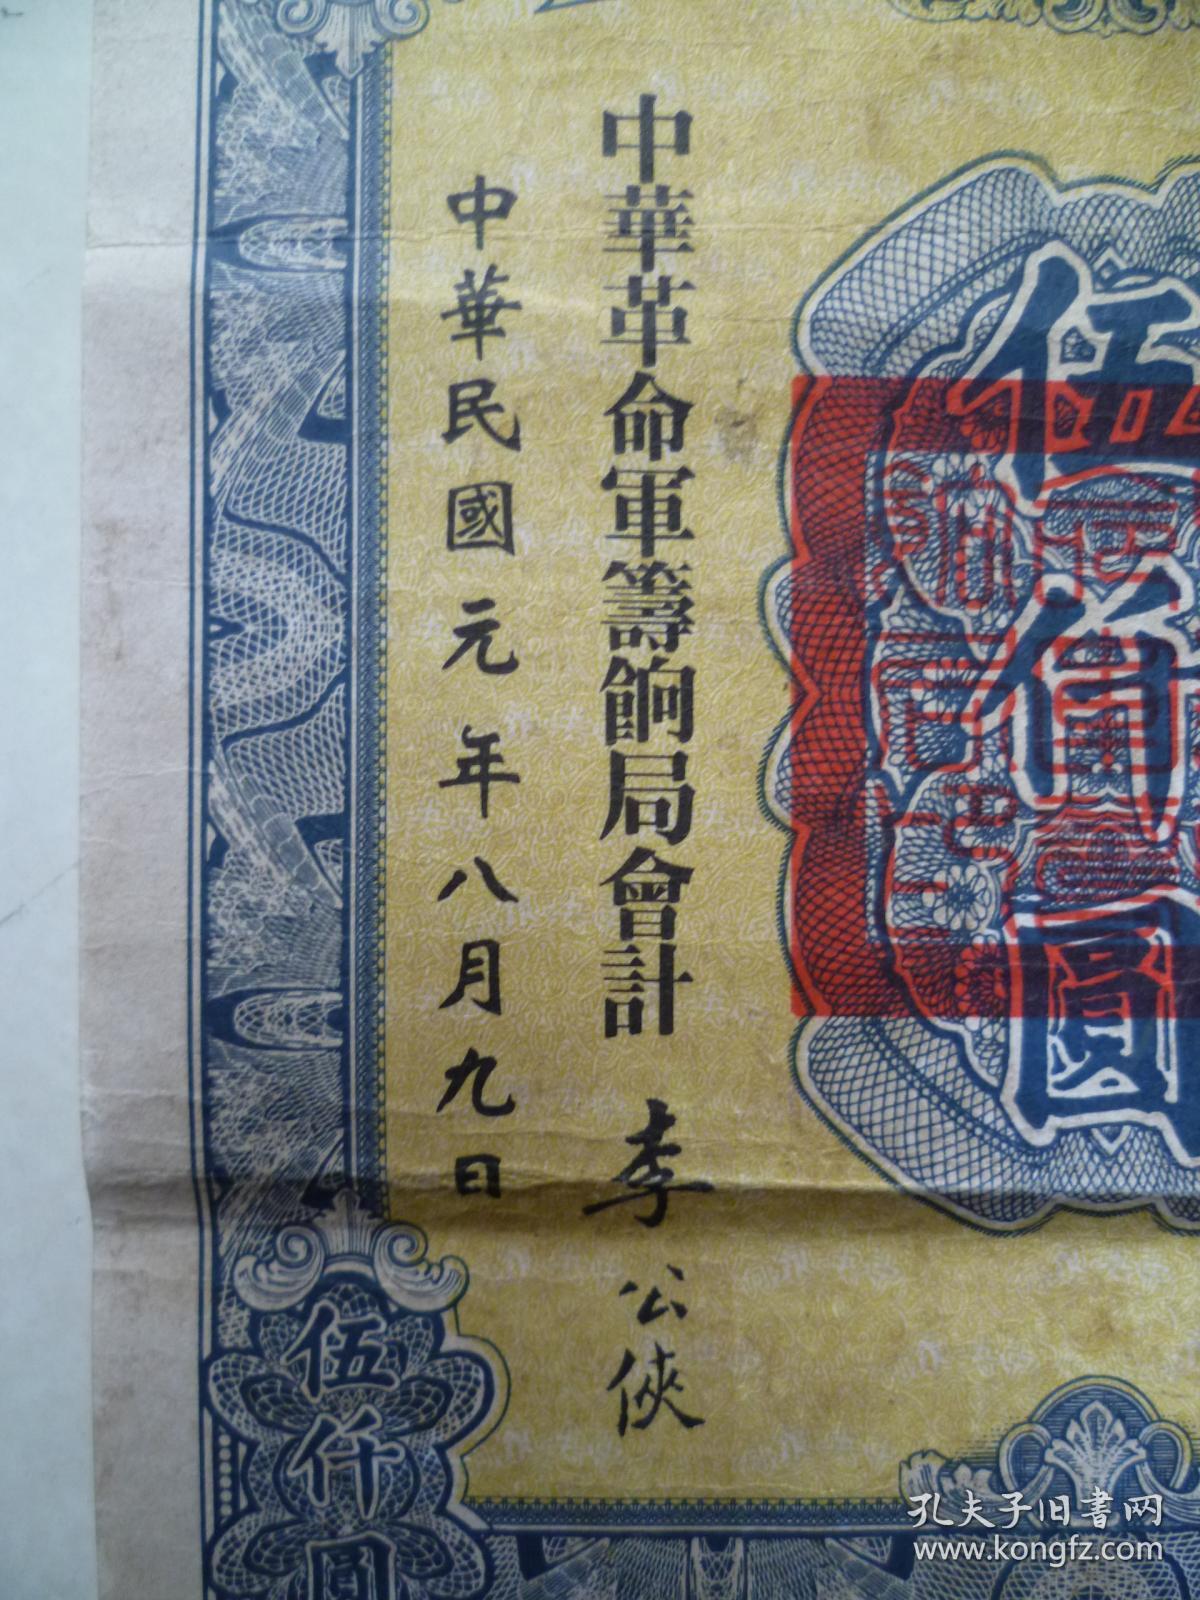 伍仟圓
中華革命軍籌餉局會計 李公俠
中華民國元年八月九日
伍仟圓
孔夫子旧书网
www.kongfz.com